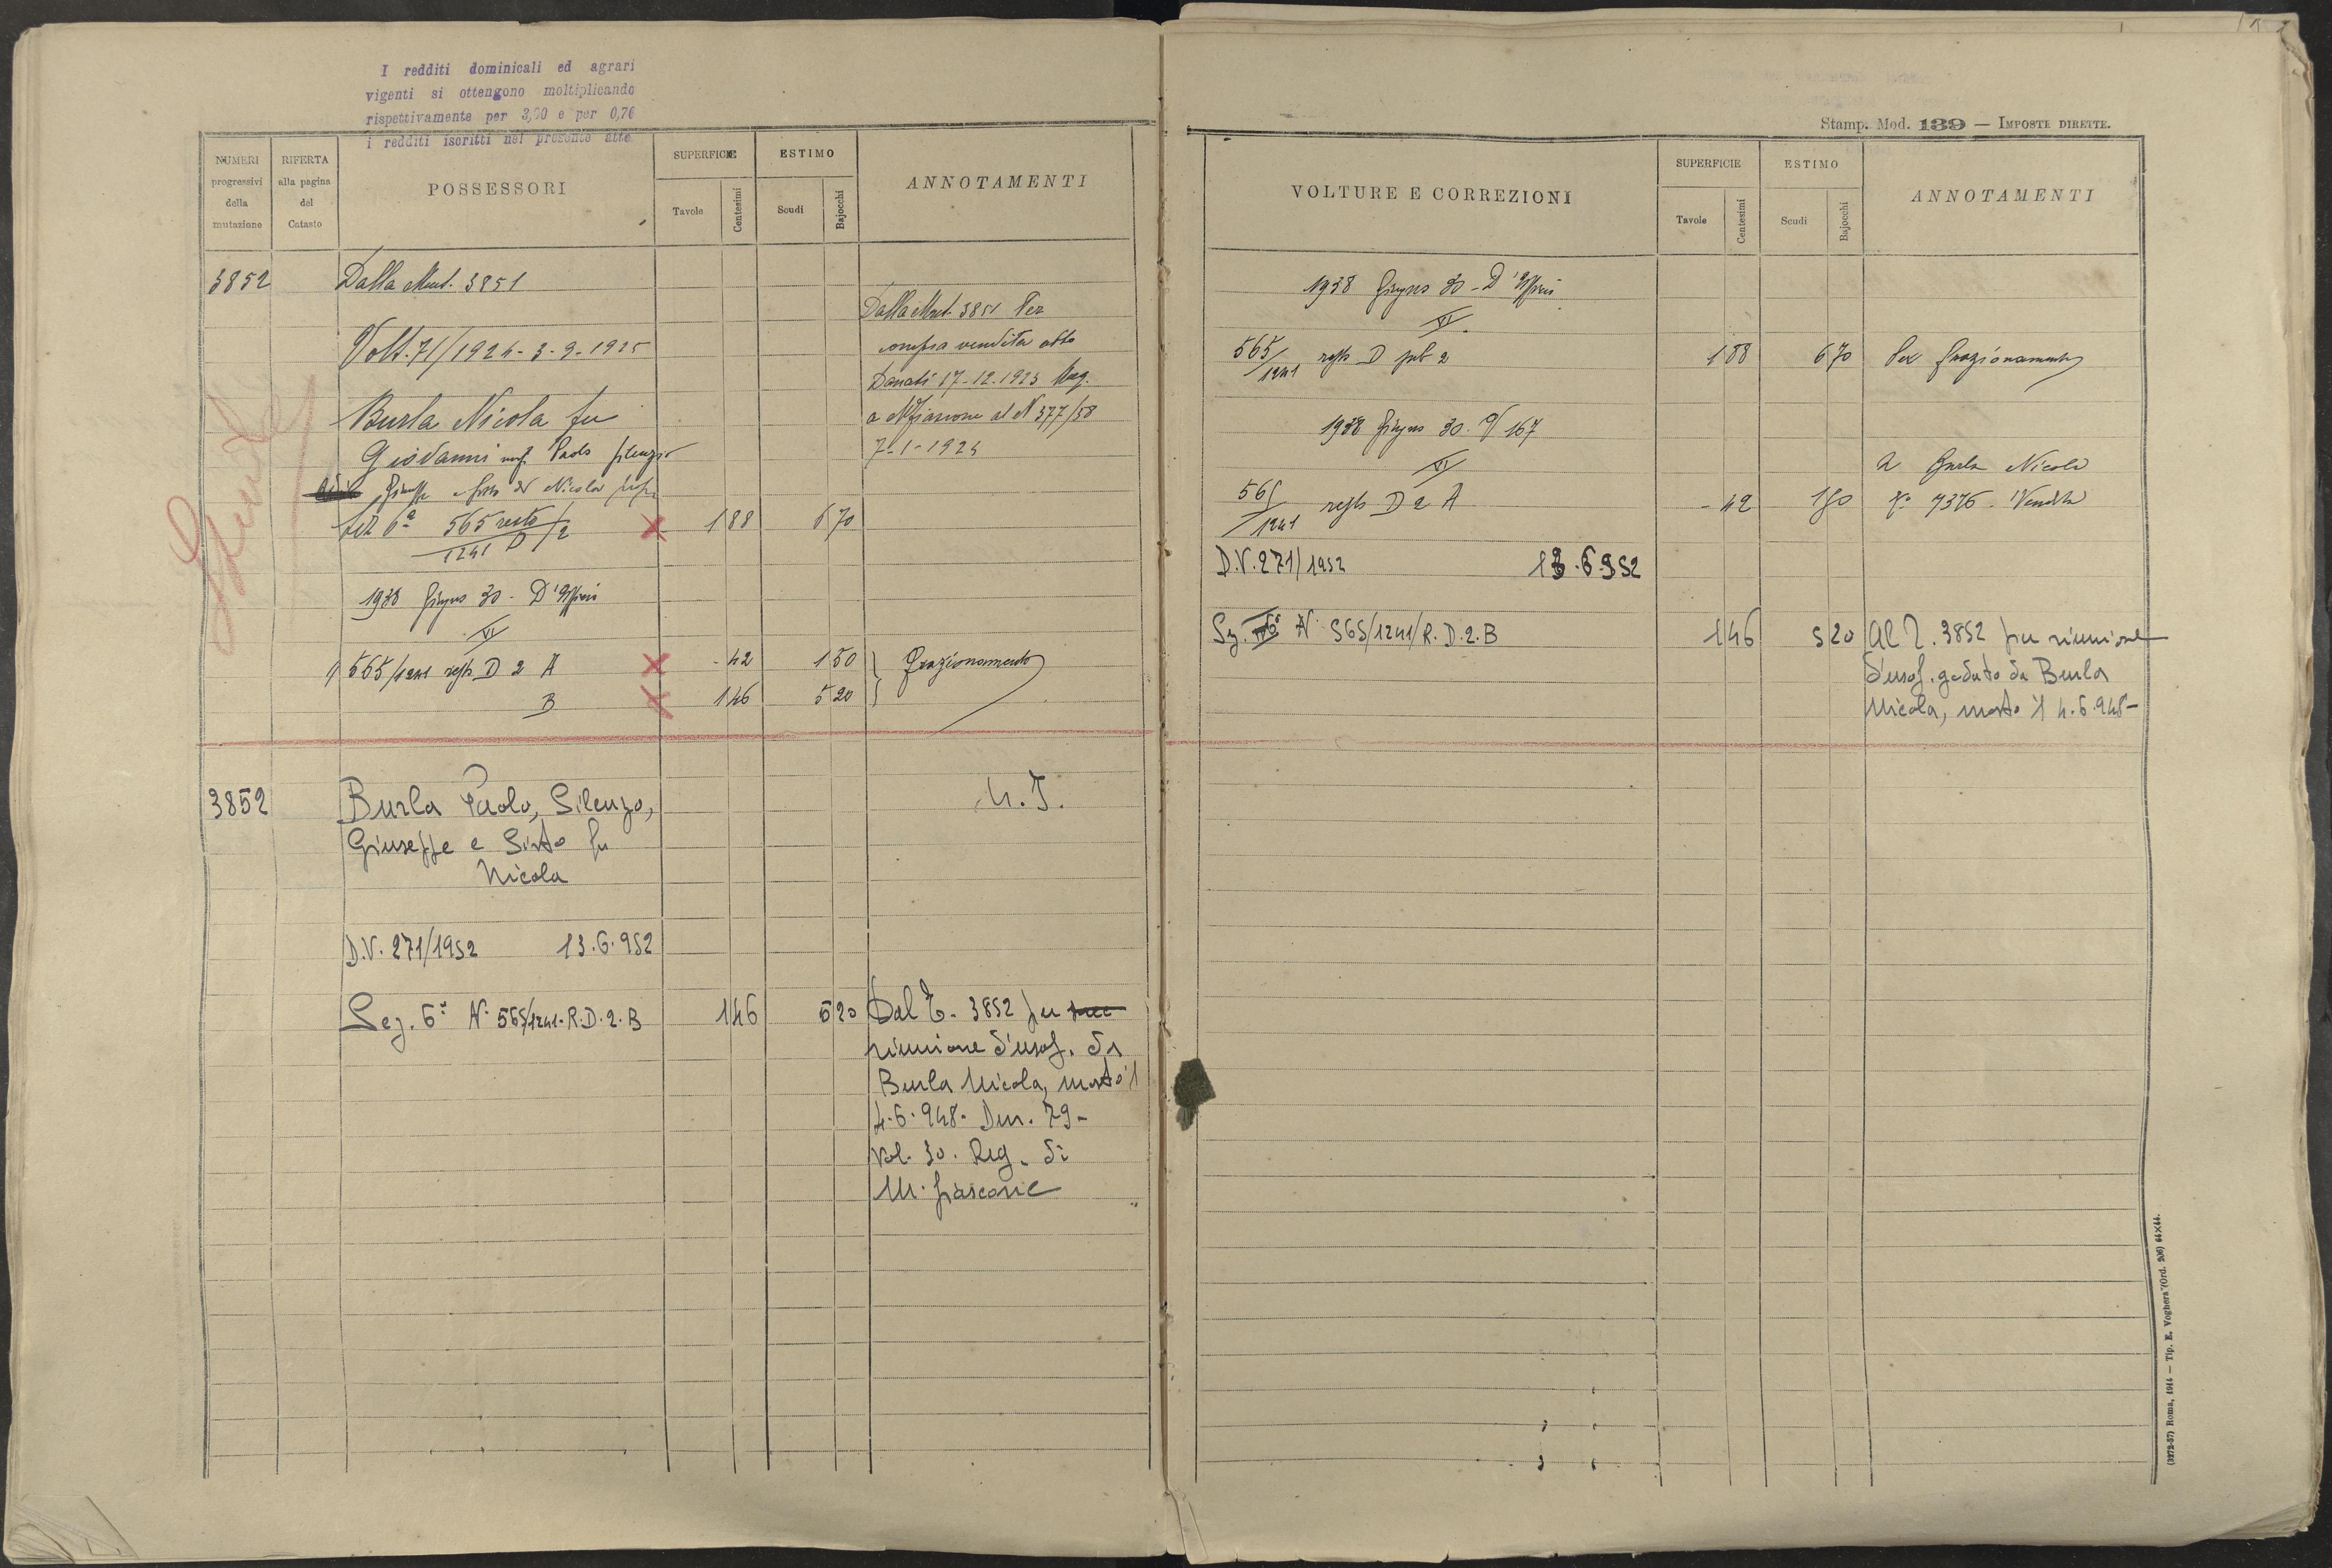 I redditi dominicali ed agrari
vigenti si ottengono moltiplicando
rispettivamente per 3,00 e per 0,76
i redditi iscritti nel presente atto
NUMERI
progressivi
della
mutazione
RIFERTA
alla pagina
del
Catasto
POSSESSORI
SUPERFICIE
Tavole
Centesimi
ESTIMO
Scudi
Bajocchi
ANNOTAMENTI
3852
Dalla Mut. 3851
Volt. 71/1924 - 3-9-1925
Burla Nicola fu
Giovanni
565 resto
1241 D/2
1 88
6 70
Dalla Mut. 3851 Per
compra vendita atto
Donati 17-12-1923 Reg.
a Mfiascone al N 377/58
7-1-1924
1938 Giugno 30 - D'Ufficio
VI
565/1241 resto D 2 A
- 42
1 50
Frazionamento
B
1 46
5 20
3852
Burla Paolo, Silenzo,
Giuseppe e Sisto fu
Nicola
D.V. 271/1952 13.6.952
Sez. 6ª N. 565/1241-R.D.2.B
1 46
5 20
Dal T. 3852 per
riunione d'usuf. da
Burla Nicola, morto il
4.6.948. Den. 79-
Vol. 30. Reg. di
M. fiascone
Stamp. Mod. 139 — IMPOSTE DIRETTE.
VOLTURE E CORREZIONI
SUPERFICIE
Tavole
Centesimi
ESTIMO
Scudi
Bajocchi
ANNOTAMENTI
1938 Giugno 30 - D'Ufficio
VI
565/1241 resto D sub 2
1 88
6 70
Per frazionamento
1938 Giugno 30
167
VI
565/1241 resto D 2 A
- 42
1 50
a Burla Nicola
7376 - Vendita
D.V. 271/1952
13.6.952
N. 565/1241/R.D.2.B
1 46
5 20
Al T. 3852 per riunione
d'usuf. goduto da Burla
Nicola, morto il 4.6.948-
(3272-57) Roma, 1944 — Tip. E. Voghera (Ord. 206) 64×44.